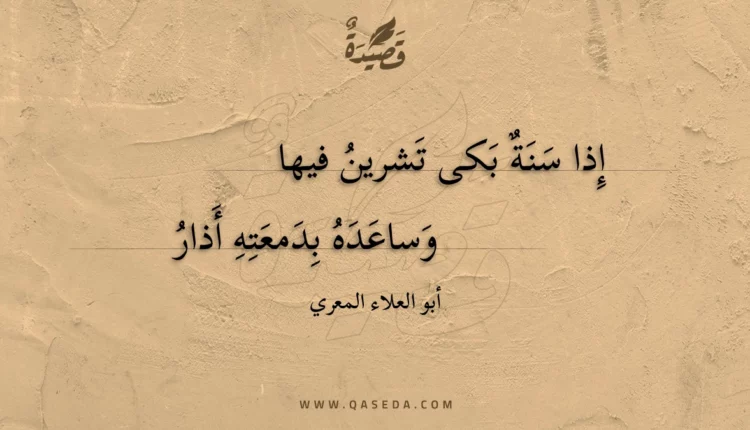 قَصِيْدَةٌ
إِذا سَنَةٌ بَكى تَشرينُ فيها
وَساعَدَهُ بِدَمعَتِهِ أَذارُ
أبو العلاء المعري
WWW.QASEDA.COM